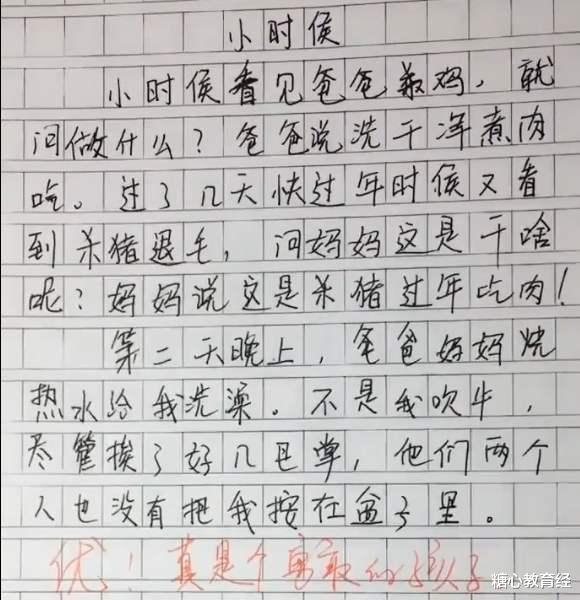 小时侯
小时侯看见爸爸杀鸡，就
问做什么？爸爸说洗干净煮肉
吃。过了几天快过年时侯又看
到杀猪退毛，问妈妈这是干啥
呢？妈妈说这是杀猪过年吃肉！
第二天晚上，爸爸妈妈烧
热水给我洗澡。不是我吹牛，
尽管挨了好几巴掌，他们两个
人也没有把我按在盆子里。
优！真是个勇敢的孩子
糖心教育经